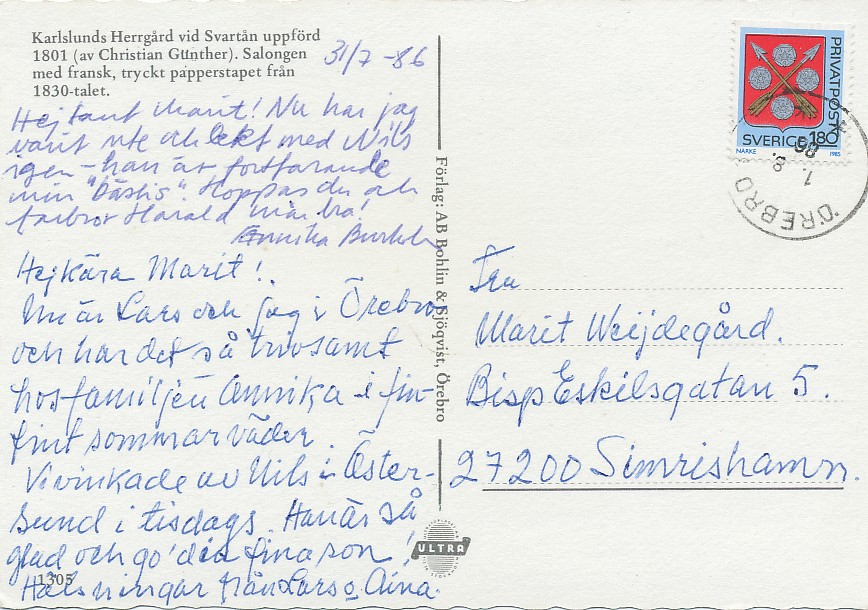 Karlslunds Herrgård vid Svartån uppförd
1801 (av Christian Günther). Salongen
med fransk, tryckt papperstapet från
1830-talet.
31/7 -86
Hej tant Marit! Nu har jag
varit ute och lekt med Nils
igen – han är fortfarande
min "bästis". Hoppas du och
farbror Harald mår bra!
Annika
Hej kära Marit!
Nu är Lars och jag i Örebro
och har det så trivsamt
hos familjen Annika i fin-
fint sommarväder.
Vi vinkade av Nils i Öster-
sund i tisdags. Han är så
glad och go' din fina son!
Hälsningar från Lars o Aina.
1305
Förlag: AB Bohlin & Sjöqvist, Örebro
ULTRA
PRIVATPOST
SVERIGE 180
NÄRKE 1985
ÖREBRO
1. 8. 86
Fru
Marit Weijdegård.
Bisp Eskilsgatan 5.
27200 Simrishamn.